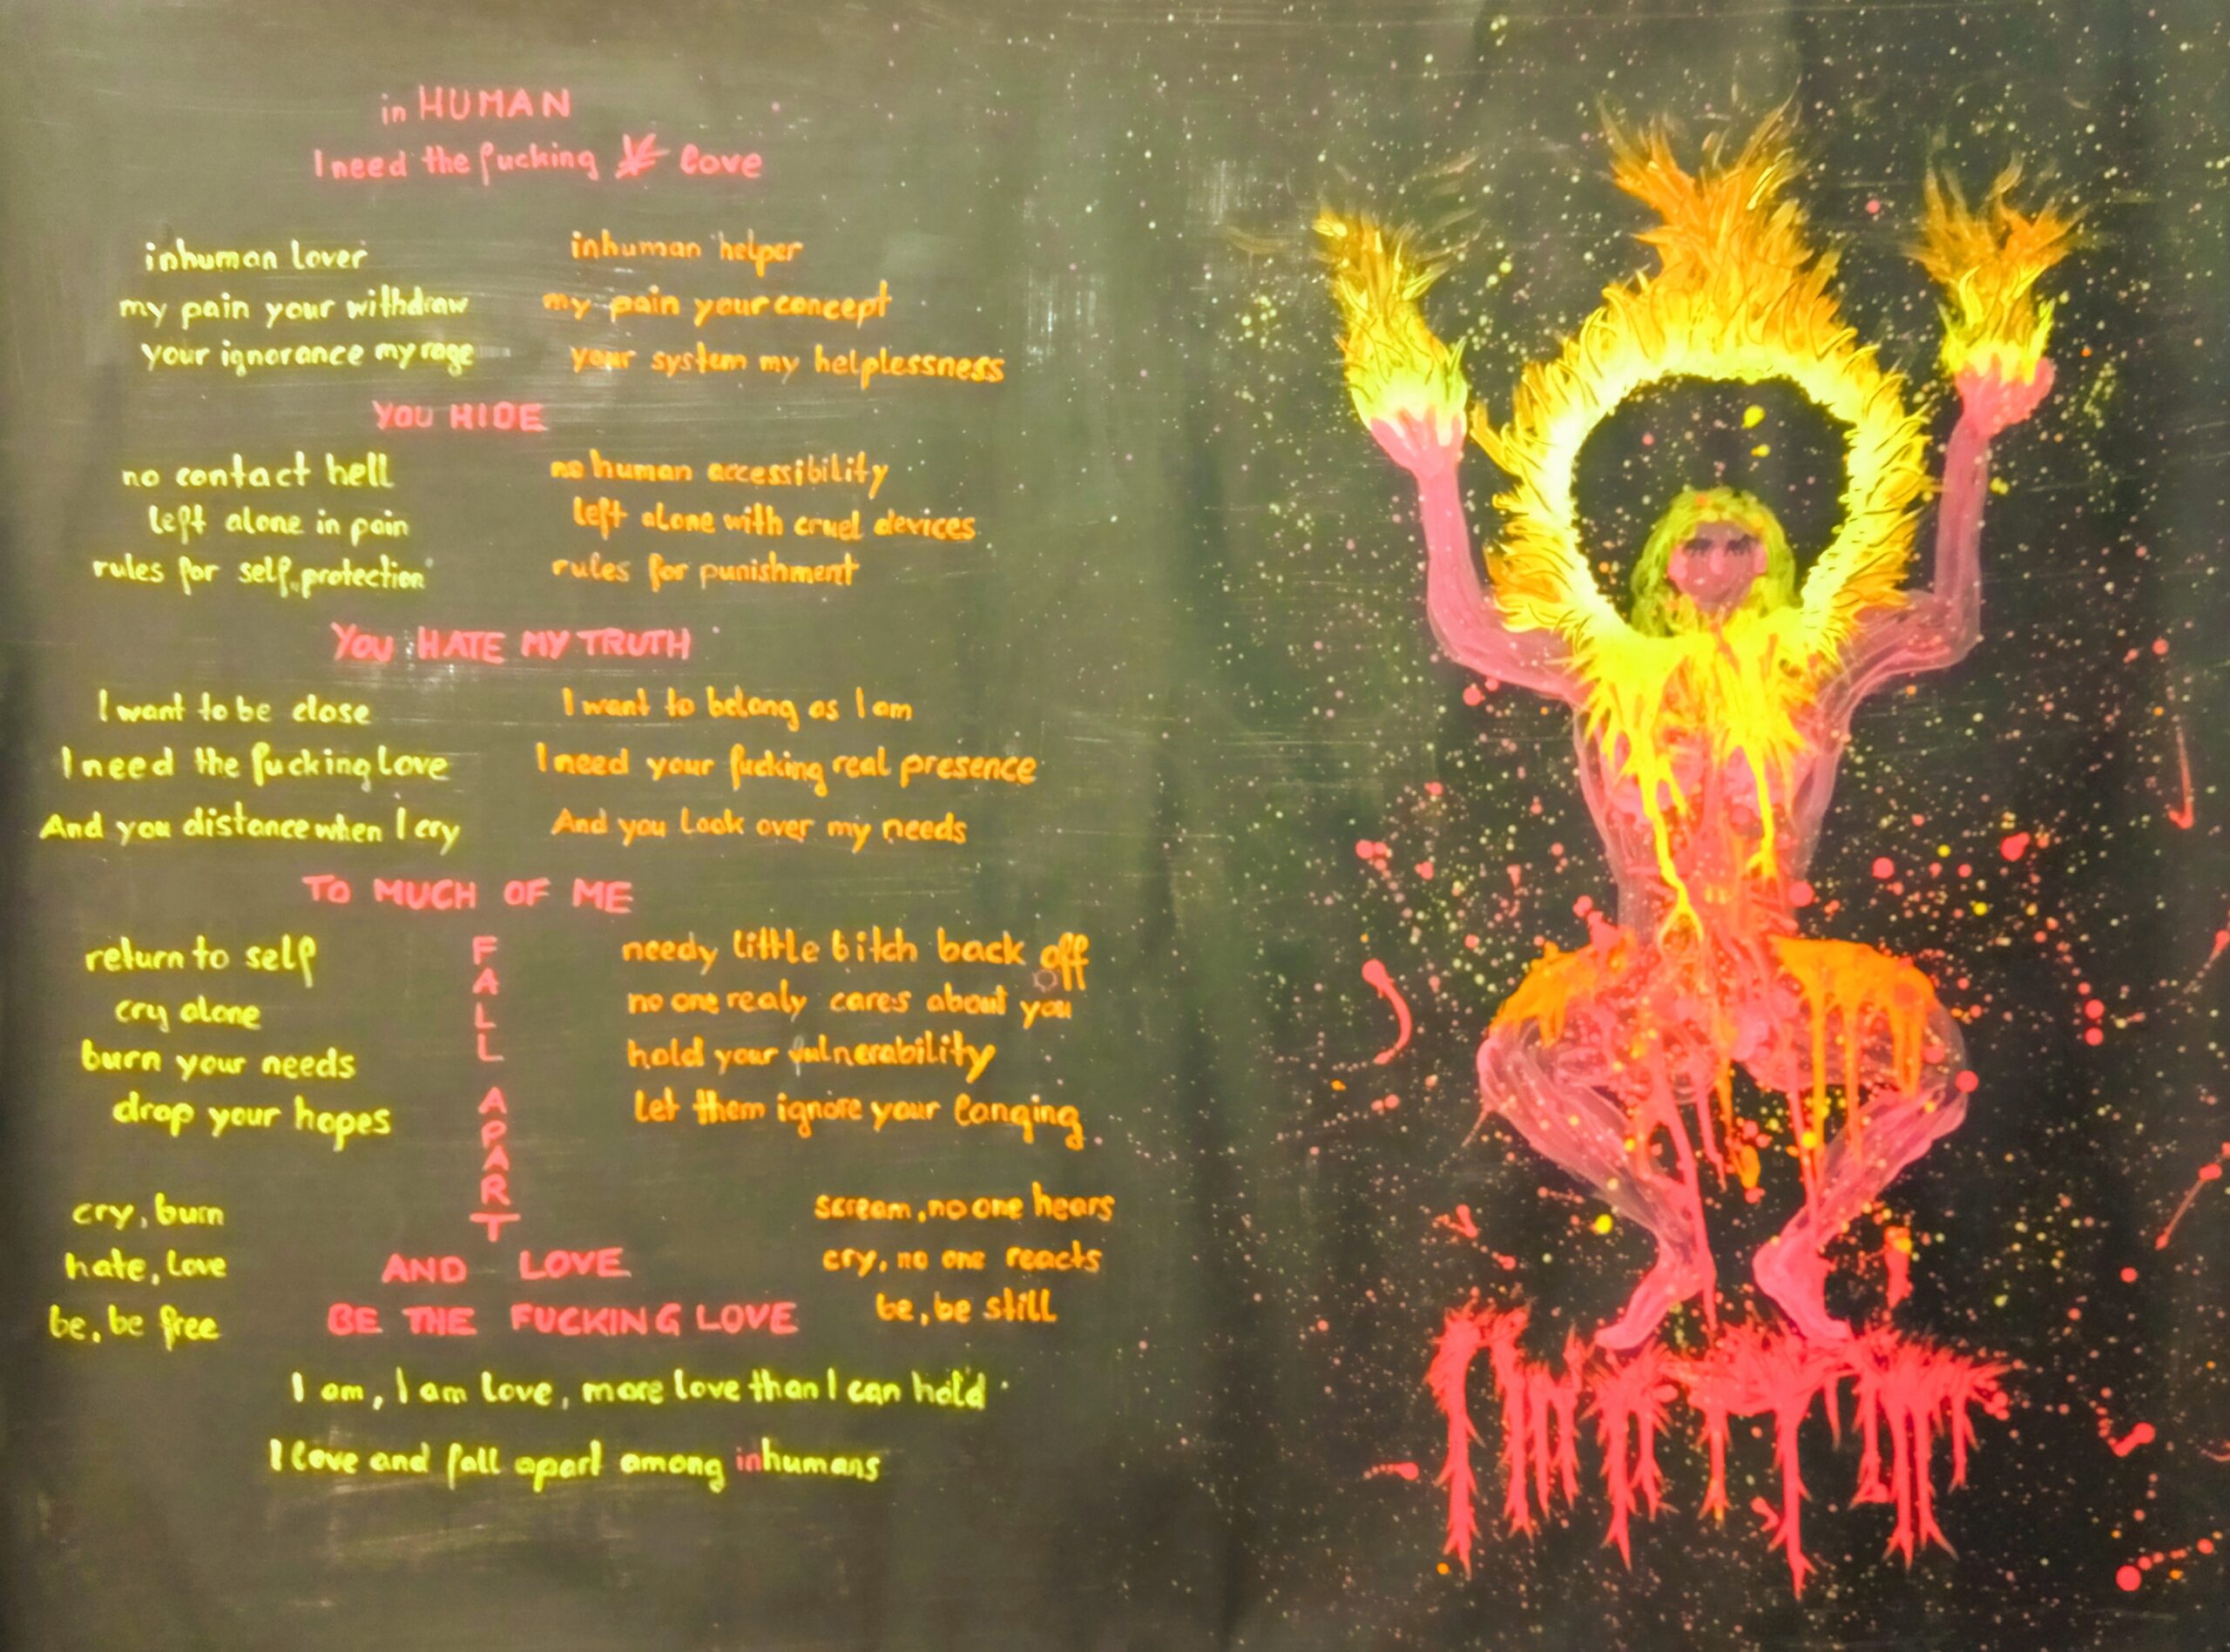 in HUMAN
I need the fucking love
inhuman lover
my pain your withdraw
your ignorance my rage
inhuman helper
my pain your concept
your system my helplessness
YOU HIDE
no contact hell
left alone in pain
rules for self„protection"
no human accessibility
left alone with cruel devices
rules for punishment
YOU HATE MY TRUTH
I want to be close
I need the fucking Love
And you distance when I cry
I want to belong as I am
I need your fucking real presence
And you look over my needs
TO MUCH OF ME
return to self
cry alone
burn your needs
drop your hopes
FALL APART
needy little bitch back off
no one realy cares about you
hold your vulnerability
Let them ignore your longing
cry, burn
hate, love
be, be free
scream, no one hears
cry, no one reacts
be, be still
AND LOVE
BE THE FUCKING LOVE
I am, I am love, more love than I can hold
I love and fall apart among inhumans